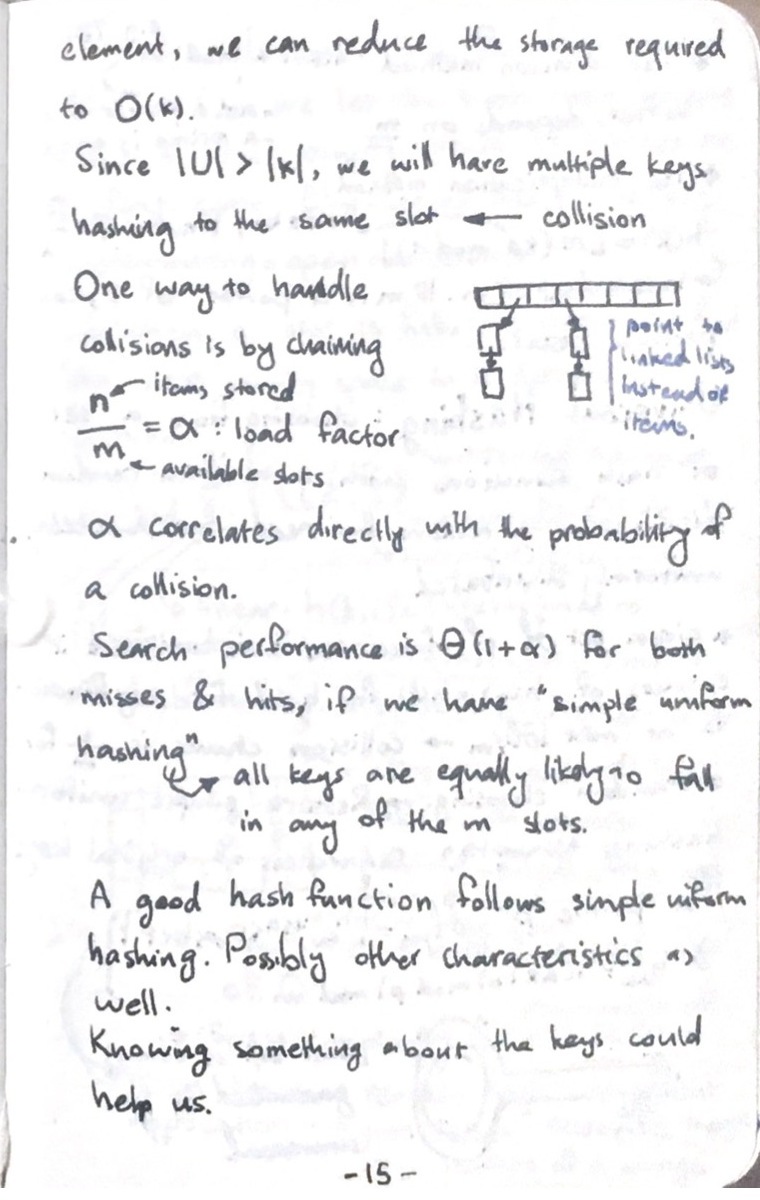 element, we can reduce the storage required
to O(k).
Since |U| > |k|, we will have multiple keys
hashing to the same slot ← collision
One way to handle
collisions is by chaining
point to
linked lists
instead of
items.
n ← items stored
— = α : load factor
m ← available slots
α correlates directly with the probability of
a collision.
Search performance is Θ(1+α) for both
misses & hits, if we have "simple uniform
hashing"
↳ all keys are equally likely to fall
in any of the m slots.
A good hash function follows simple uniform
hashing. Possibly other characteristics as
well.
Knowing something about the keys could
help us.
-15-